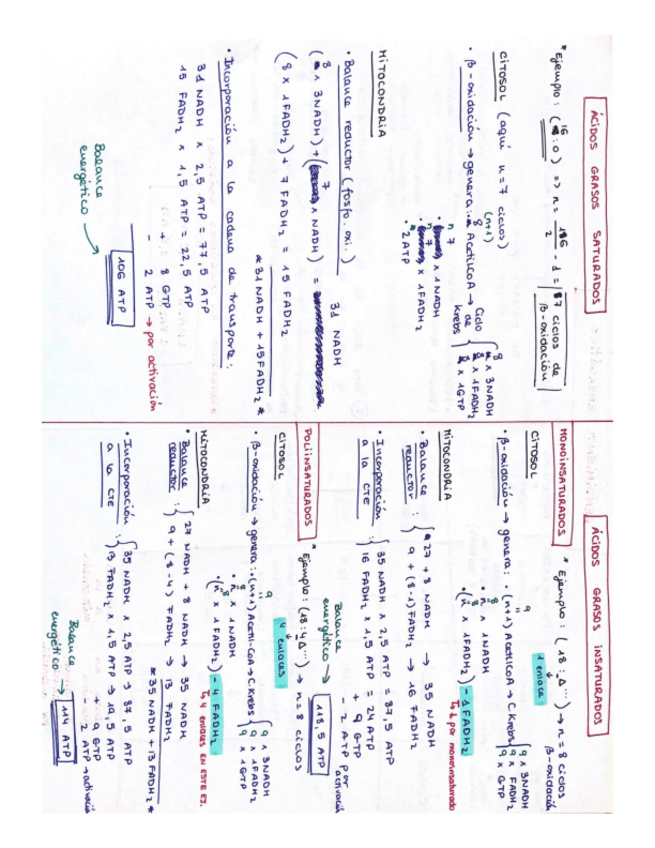 ÁCIDOS GRASOS SATURADOS
* Ejemplo: (16:0) => n = 16/2 - 1 = 7 ciclos de β-oxidación
CITOSOL (aquí n=7 ciclos)
· β-oxidación → genera: 8 Acetil CoA → Ciclo de Krebs { 8 x 3NADH
(n+1)
8 x 1FADH2
8 x 1GTP
· n 7 x 1NADH
· n 7 x 1FADH2
· 2 ATP
MITOCONDRIA
· Balance reductor (fosfo. oxi.)
(8 x 3NADH) + (7 x NADH) = 31 NADH
(8 x 1FADH2) + 7 FADH2 = 15 FADH2
* 31 NADH + 15FADH2 *
· Incorporación a la cadena de transporte:
31 NADH x 2,5 ATP = 77,5 ATP
15 FADH2 x 1,5 ATP = 22,5 ATP
+ 8 GTP
- 2 ATP → por activación
Balance energético → 106 ATP
ÁCIDOS GRASOS INSATURADOS
MONOINSATURADOS * Ejemplo: (18:Δ...) → n=8 ciclos β-oxidación
1 enlace
CITOSOL
· β-oxidación → genera: · (n+1) Acetil CoA → C. Krebs { 9 x 3NADH
9
9 x FADH2
9 x GTP
· n 8 x 1NADH
· (n 8 x 1FADH2) - 1 FADH2
↳ 1 por monoinsaturado
MITOCONDRIA
· Balance reductor: { 27 + 8 NADH → 35 NADH
9 + (8-1) FADH2 → 16 FADH2
· Incorporación a la CTE: { 35 NADH x 2,5 ATP = 87,5 ATP
16 FADH2 x 1,5 ATP = 24 ATP
+ 9 GTP
- 2 ATP por activación
Balance energético → 118,5 ATP
POLIINSATURADOS * Ejemplo: (18:4Δ...) → n=8 ciclos
4 enlaces
CITOSOL
· β-oxidación → genera: · (n+1) Acetil-CoA → C. Krebs { 9 x 3NADH
9
9 x 1FADH2
9 x 1GTP
· n 8 x 1NADH
· (n 8 x 1FADH2) - 4 FADH2
↳ 4 enlaces EN ESTE EJ.
MITOCONDRIA
· Balance reductor: { 27 NADH + 8 NADH → 35 NADH
9 + (8-4) FADH2 → 13 FADH2
* 35 NADH + 13 FADH2 *
· Incorporación a la CTE: { 35 NADH x 2,5 ATP → 87,5 ATP
13 FADH2 x 1,5 ATP → 19,5 ATP
+ 9 GTP
- 2 ATP → activación
Balance energético → 114 ATP